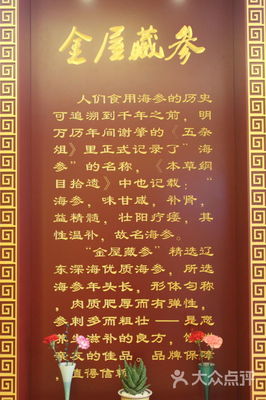 金屋藏參
人们食用海参的历史
可追溯到千年之前，明
万历年间谢肇的《五杂
俎》里正式记录了“海
参”的名称，《本草纲
目拾遗》中也记载：“
海参，味甘咸，补肾，
益精髓，壮阳疗痿，其
性温补，故名海参。
“金屋藏参”精选辽
东深海优质海参，所选
海参年头长，形体匀称
，肉质肥厚而有弹性，
参刺多而粗壮——是您
养生滋补的良方，馈
亲友的佳品。品牌保障
，值得信赖
大众点评